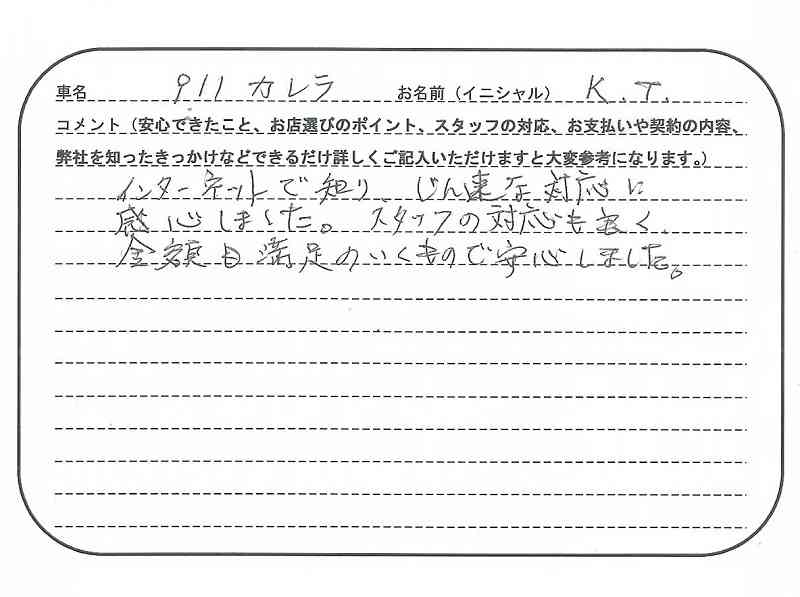 車名 911 カレラ お名前（イニシャル） K.T.
コメント（安心できたこと、お店選びのポイント、スタッフの対応、お支払いや契約の内容、
弊社を知ったきっかけなどできるだけ詳しくご記入いただけますと大変参考になります。）
インターネットで知り、じん速な対応に
感心しました。スタッフの対応も良く
金額も満足のいくもので安心しました。